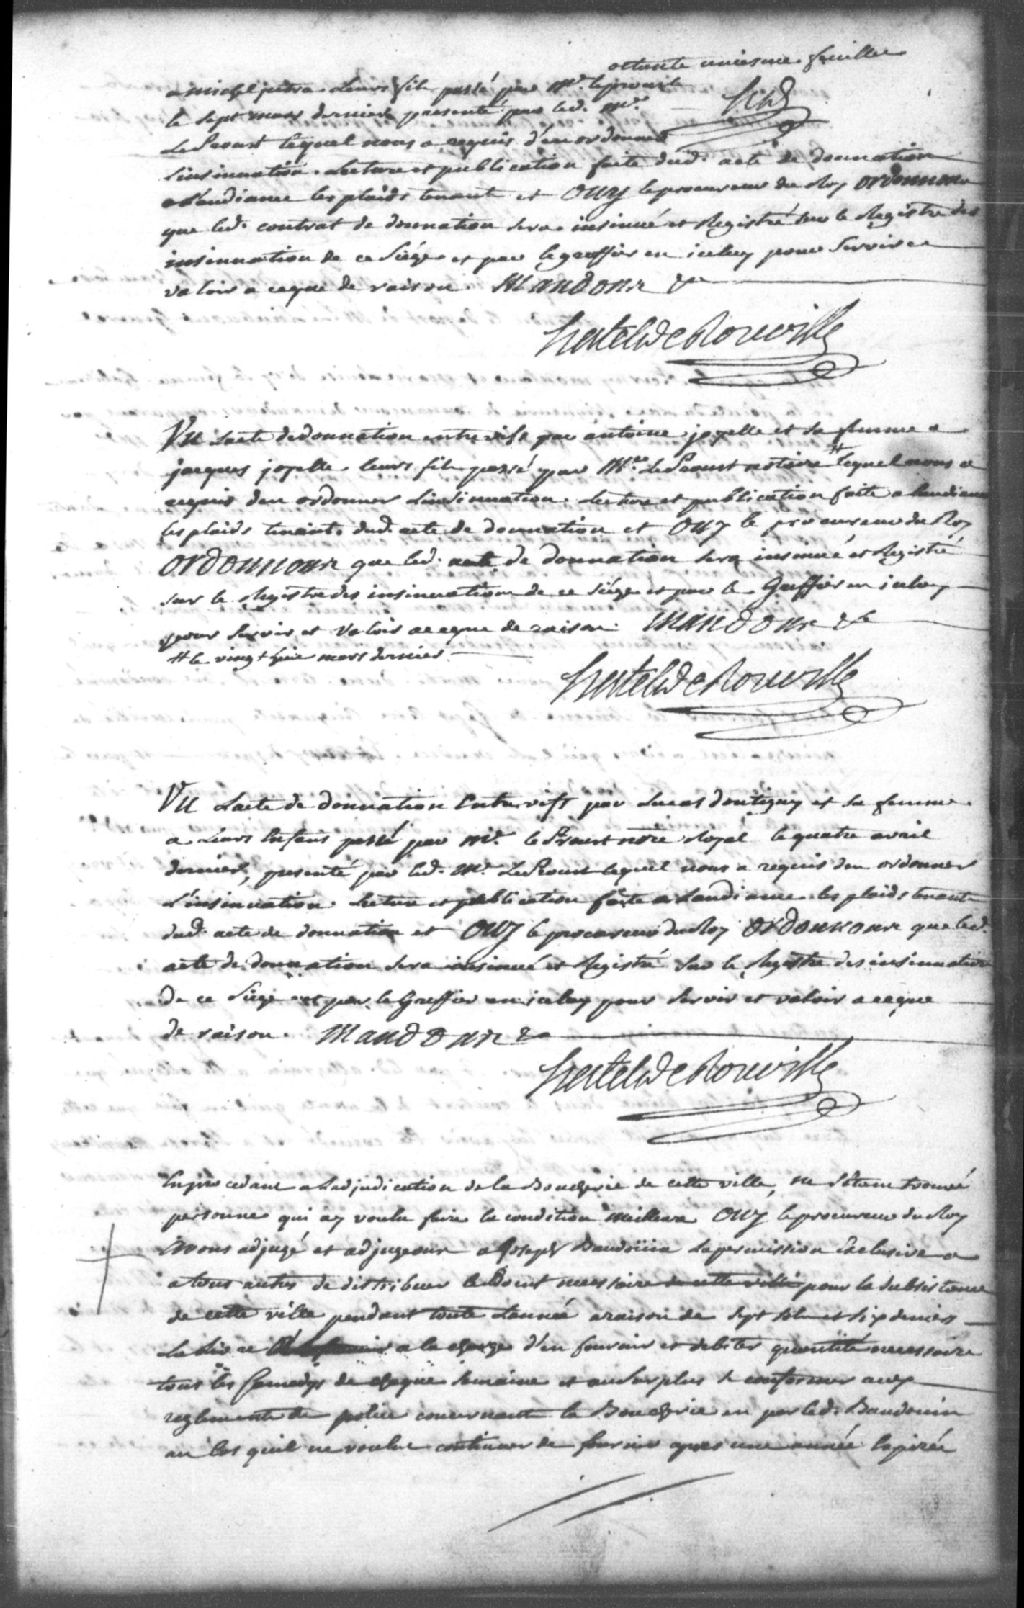 octante uniesme feuillet
a michel petra leurs fils passé par Mr. leproust
le sept mars dernier presenté par led. Mr.
LeProust lequel nous a requis d'en ordonner
Linsinuation. Lecture et publication faite dud. acte de donnation
a Laudiance les plaids tenant et OUY le procureur du Roy ordonnons
que led. contrat de donnation sera insinué et Registré sur le Registre des
insinuation de ce Siége et par le greffier en iceluy pour Servir et
valoir a ceque de raison. Mandons &c
Hertel de Rouville
VU Lacte de donnation entrevifs par antoine joyelle et sa femme a
jacques joyelle leurs fils passé par Mre. LeProust notaire # lequel nous a
requis den ordonner Linsinuation. Lecture et publication faite a Laudiance
les plaids tenants dud. acte de donnation et OUY le procureur du Roy
ordonnons que led. acte de donnation sera insinué et Registré
sur le Registre des insinuation de ce Siége et par le Greffier en iceluy
pour Servir et valoir a ceque de raison. Mandons &c
# le vingt huit mars dernier
Hertel de Rouville
VU Lacte de donnation Entrevifs par Lucas dontigny et sa femme
a Leurs Enfans passé par Mr. le Proust nore. Royal le quatre avril
dernier, presenté par led. Mr. LeProust lequel nous a requis den ordonner
L'insinuation. Lecture et publication faite a Laudiance les plaids tenant
dud. acte de donnation et OUY le procureur du Roy ordonnons que led.
acte de donnation sera insinué et Registré sur le Registre des insinuation
de ce Siége et par le Greffier en iceluy pour Servir et valoir a ceque
de raison. Mandons &c
Hertel de Rouville
En procedant a Ladjudication de la Boucherie de cette ville, ne S'étant trouvé
personne qui ay voulu faire la condition Meilleure OUY le procureur du Roy
avons adjugé et adjugeons a Joseph Baudouin La permission Exclusive a
a tous autres de distribuer le Boeuf necessaire a cette ville pour la Subsistance
de cette ville pendant toute Lannée a raison de Sept Sols et Six deniers
La Livre a la charge d'en fournir et debiter quantité necessaire
tous les Samedys de chaque Semaine et au Surplus se conformer aux
reglements de police concernant la Boucherie en par led. Baudouin
au Cas quil ne voulut continuer de fournir apres une année Expirée